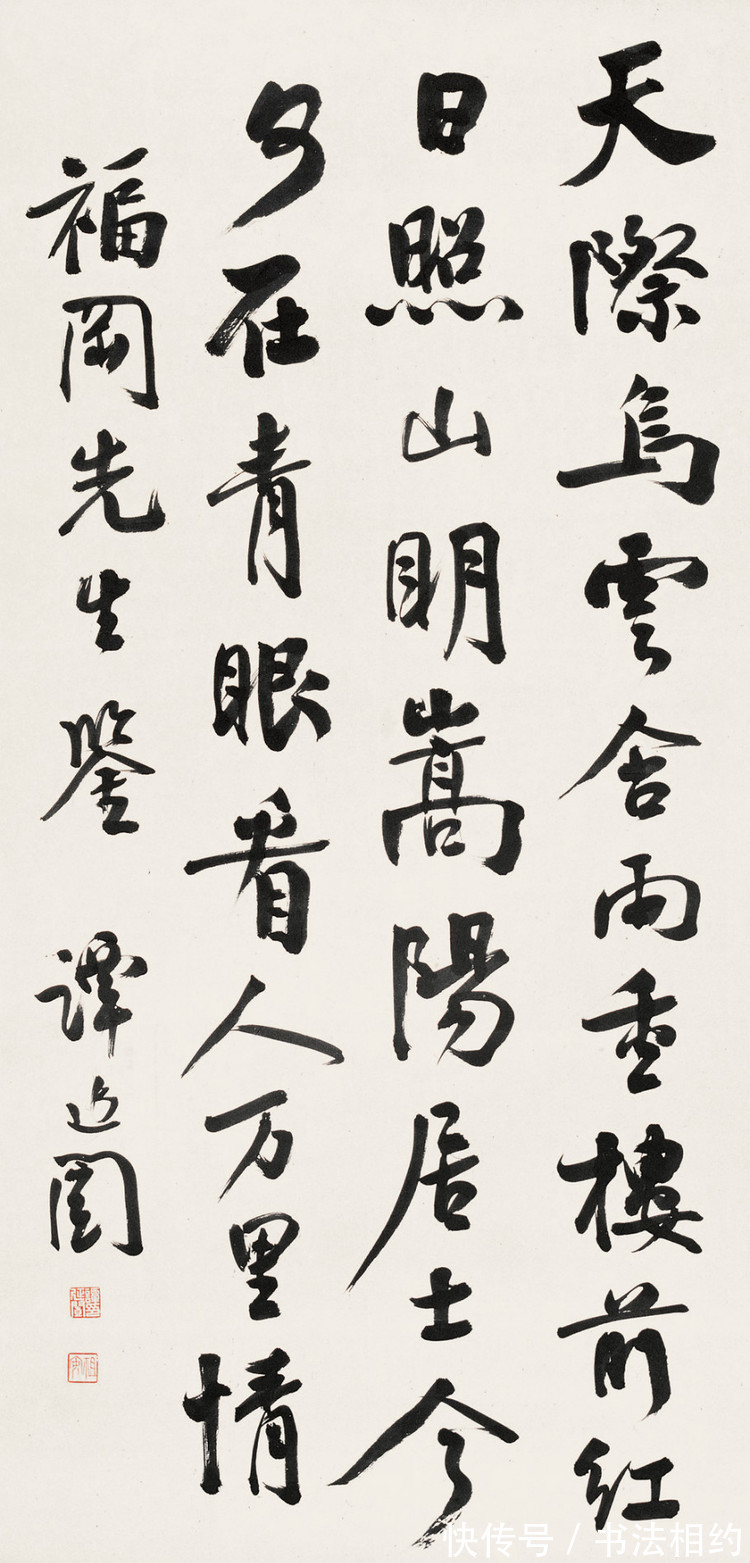 天際烏雲含雨重樓前紅
日照山明嵩陽居士今
何在青眼看人万里情
福岡先生鑒 譚延闓
祖安
快传号 / 书法相约